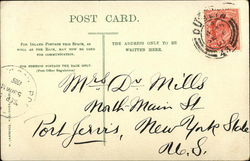 POST CARD.
FOR INLAND POSTAGE THIS SPACE, AS
WELL AS THE BACK, MAY NOW BE USED
FOR COMMUNICATION.
FOR FOREIGN POSTAGE THE BACK ONLY.
(Post Office Regulation)
THE ADDRESS ONLY TO BE
WRITTEN HERE.
Mrs Dr Mills
North Main St
Port Jervis, New York State
U.S.